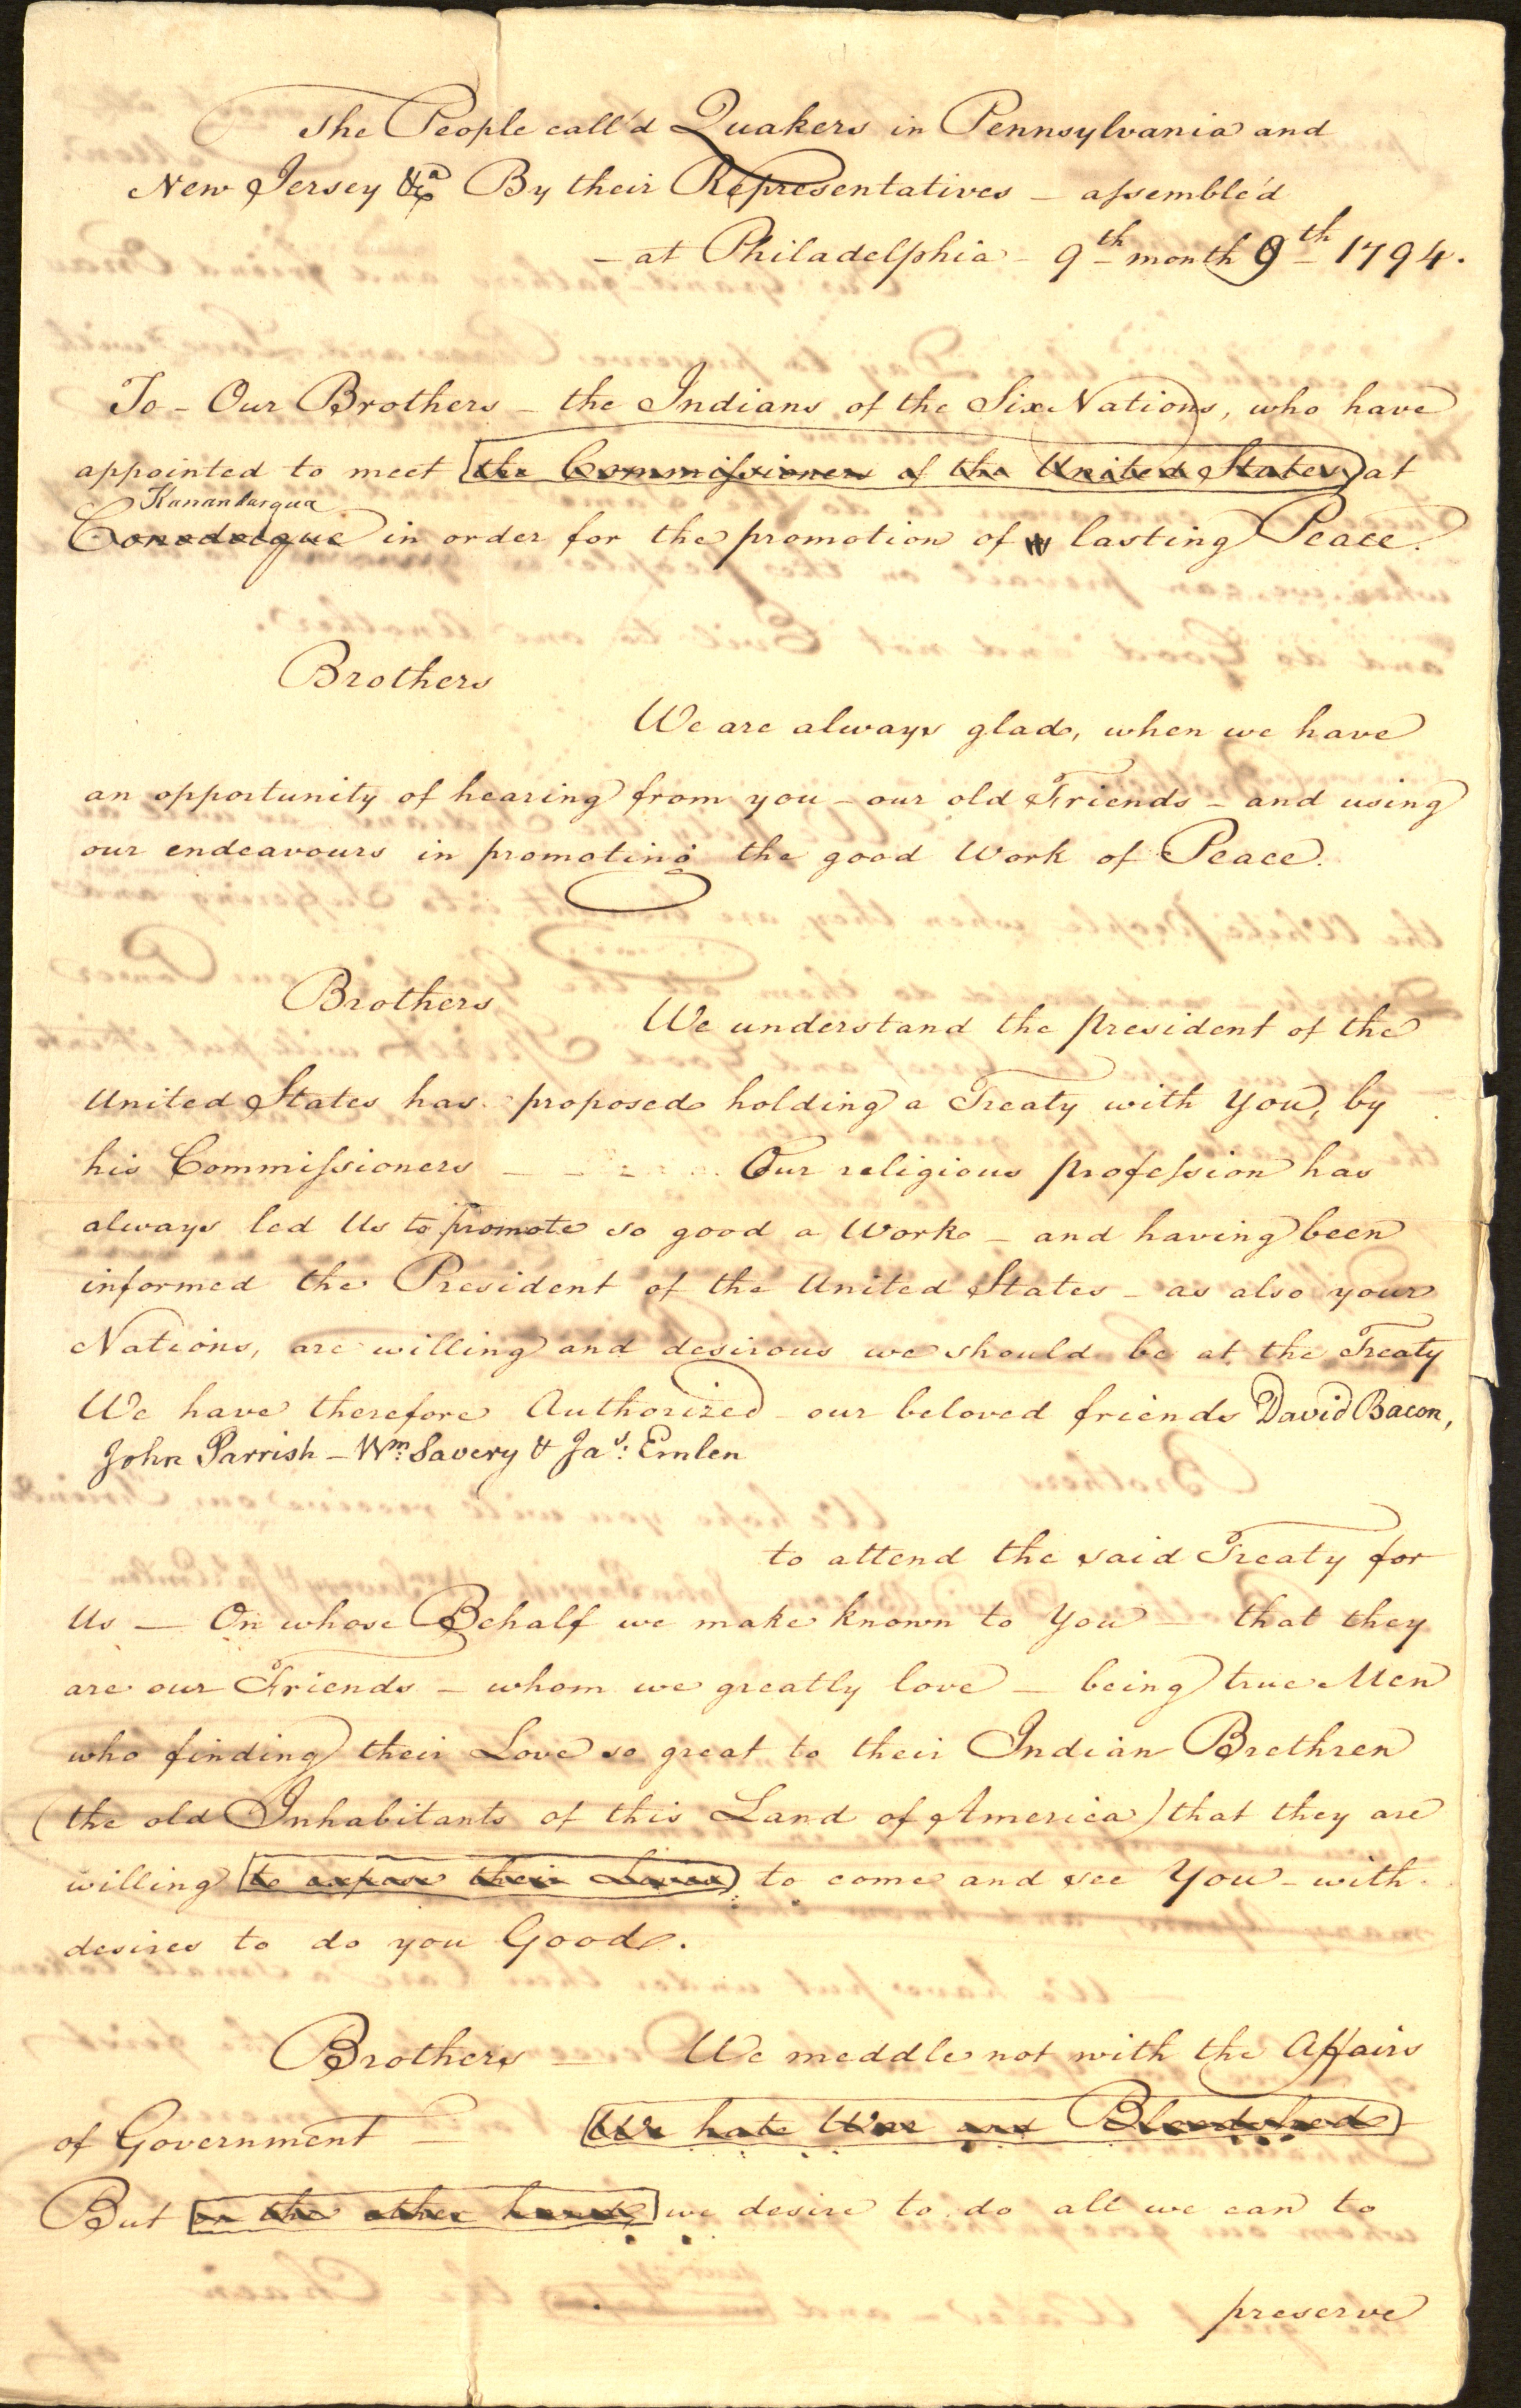 The People call'd Quakers in Pennsylvania and
New Jersey &ca By their Representatives – assemble'd
– at Philadelphia – 9th month 9th 1794.
To – Our Brothers – the Indians of the Six Nations, who have
appointed to meet the Commissioners of the United States at
Kanandarqua
Canodalque in order for the promotion of lasting Peace.
Brothers
We are always glad, when we have
an opportunity of hearing from you – our old Friends – and using
our endeavours in promoting the good Work of Peace.
Brothers
We understand the President of the
United States has proposed holding a Treaty with You, by
his Commissioners – – – Our religious profession has
always led Us to promote so good a Work – and having been
informed the President of the United States – as also your
Nations, are willing and desirous we should be at the Treaty
We have therefore Authorized – our beloved friends David Bacon,
John Parrish – Wm. Savery & Jas. Emlen
to attend the said Treaty for
Us — On whose Behalf we make known to You — that they
are our Friends – whom we greatly love – being true Men
who finding their Love so great to their Indian Brethren
(the old Inhabitants of this Land of America) that they are
willing to expose their Lives to come and see You – with
desires to do you Good.
Brothers — We meddle not with the Affairs
of Government — We hate War and Bloodshed
But on the other hand, we desire to do all we can to
preserve